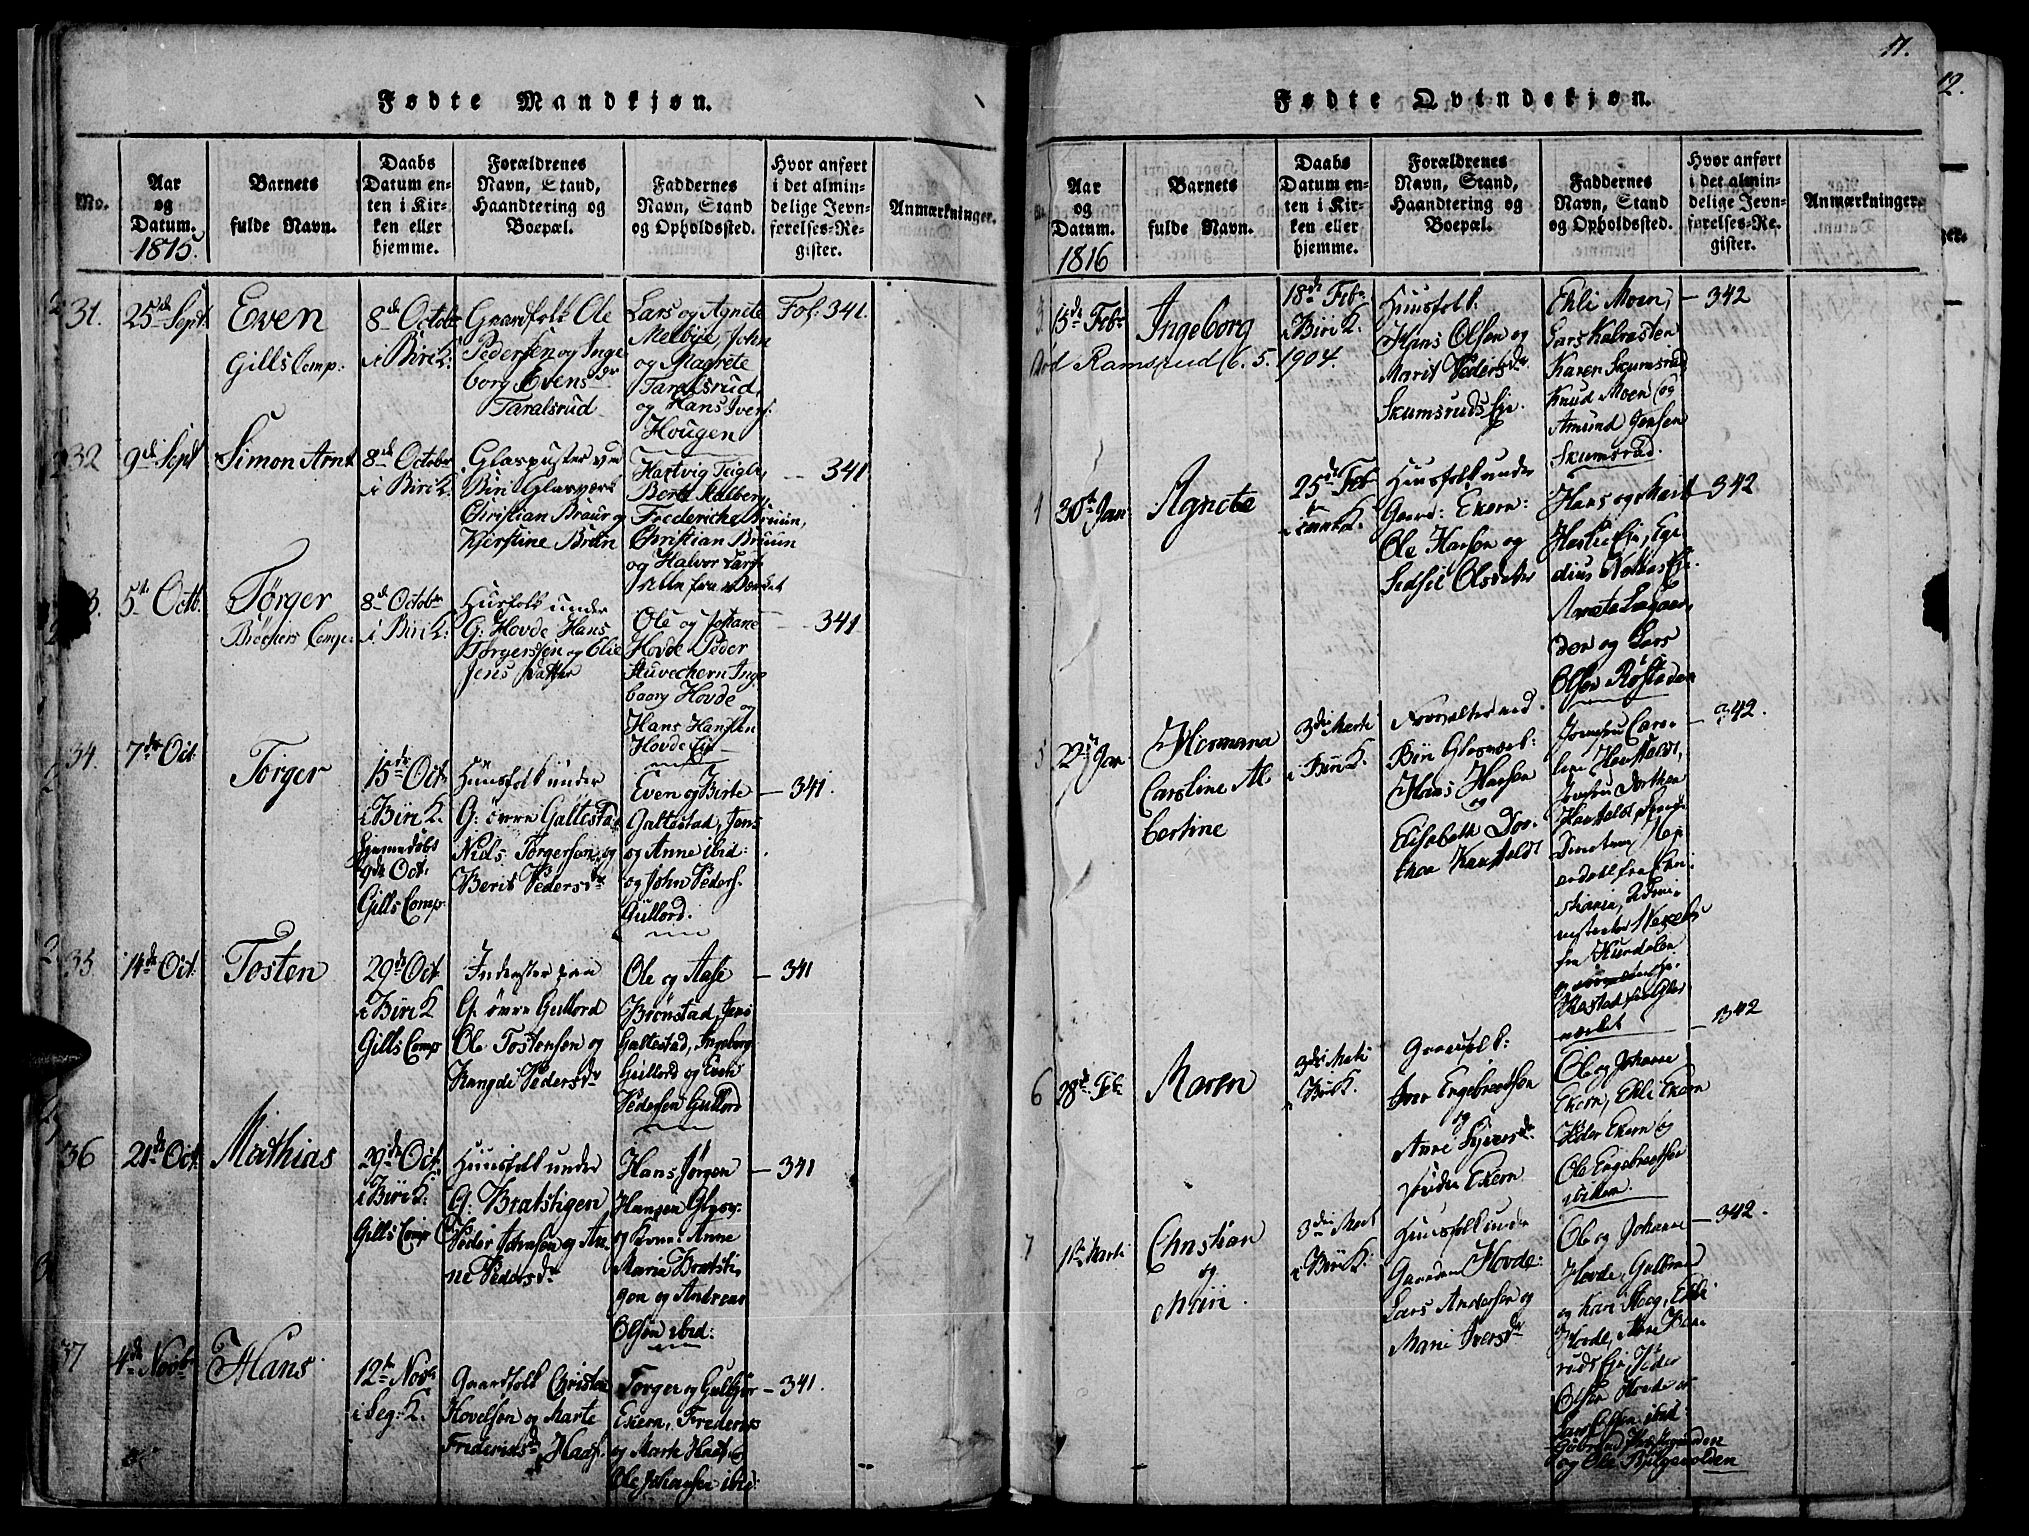 Fødte Mandkjøn.
No.
Aar
og
Datum.
1815
Barnets
fulde Navn.
Daabs
Datum en-
ten i Kir-
ken eller
hjemme.
Forældrenes
Navn, Stand,
Haandtering og
Boepæl.
Faddernes
Navn, Stand
og Opholdssted.
Hvor anført
i det almin-
delige Jevn-
førelses-Re-
gister.
Anmærkninger.
31.
25de Sept
Even
Gills Comp:
8de Octobr
i Biri K:
Gaardfolk Ole
Pedersen og Inge
borg Evensdr
Taralsrud
Lars og Agnete
Melbye, John
og Magrete
Taralsrud,
og Hans Ivers:
Hougen
Fol: 341.
32
9de Sept
Simon Arnt
8de Octobr
i Biri K:
Glaspuster ved
Biri Glasværk
Christian Braur og
Kjerstine Bruun
Hartvig Teigle,
Berte Malberg,
Frederiche Bruun,
Christian Bruun
og Halvor Lars:
fra Værket
341
5te Octb.
Tørger
Brøchers Comp:
8de Octobr
i Biri K:
Huusfolk under
G: Hovde Hans
Tørgersen og Elie
Jens Datter
Ole og Johane
Hovde Peder
Inge
baarg Hovde
og
Hans Hansen
Hovde Eje
341
34.
7de Oct
Tørger
15de Oct.
i Biri K.
hjemmedøbt
9de Oct:
Gills Comp
Huusfolk under
G: øvre Galtestad
Niels Tørgersen og
Berit Pedersdr
Even og Birte
Galtestad, Jens
og Anne ibid:
og John Peders:
Gullord.
341.
35
14de Oct.
Tosten
29de Oct.
i Biri K
Gills Comp
Inderster paa
G. øvre Gullord
Ole Tostensen og
Rangde Pedersdr
Ole og Aase
Brønstad, Jens
Galtestad, Ingeborg
Gullord og Even
Pedersen Gullord
341
36
21de Oct.
Mathias
29de Oct.
i Biri K.
Gills Comp
Huusfolk under
G. Bratstigen
Peder Johnsen og An-
ne Pedersdr
Hans Jørgen
Hansen Glasv:
og Kone Anne
Marie Bratsti-
gen og Andreas
Olsen ibid:
341
37
4de Novb
Hans
12te Novb
i Seg: K.
Gaardfolk Christen
Hovelsen og Marte
Fredericsdr Haaf
Torger og Gulbjør
Ekern, Frederic
og Marte Haaf og
Ole Johansen ibid:
341.
17.
12.
Fødte Qvindekjøn.
Aar
og
Datum.
1816
Barnets
fulde Navn.
Daabs
Datum en-
ten i Kir-
ken eller
hjemme.
Forældrenes
Navn, Stand,
Haandtering og
Boepæl.
Faddernes
Navn, Stand
og Opholdssted.
Hvor anført
i det almin-
delige Jevn-
førelses-Re-
gister.
Anmærkninger.
3.
15de Febr
Ingeborg
Død Ramsrud 6. 5. 1904.
18de Febr
i Biri K.
Huusfolk:
Hans Olsen og
Marit Pedersdr
Skumsruds Eje.
Ehli Moen,
Lars
Karen Skumsrud
Knud Moen og
Amund Jensen
Skumsrud.
342
4
30te Jan
Agnete
25de Feb
Huusfolk under
Gaard: Ekern:
Ole Hansen og
Sidsel Olsdatter
Hans og Marit
Eje, Egi-
dius Eje
Agnete
og Lars
Olsen Røstaden
342
5
22de Jan
Hermana
Caroline Al-
bertine
3die Marti
i Biri K.
Forvalter ved
Biri Glasværk
Hans Hansen
og
Elisabeth Dor-
thea Kaafeldt
Jomfru Caro-
line
Jomfru Dorthea
fra Chri-
stiania,
fra Hurdalen
værket
342.
6
28de Feb
Maren
3die Marti
i Biri K.
Gaardfolk:
Iver Engebretsen
og
Anne Syversdr
søndre Ekern
Ole og Johanne
Ekern, Ehli Ekern
Peder Ekern og
Ole Engebretsen
ibidem.
342
7
1ste Marti
Christian
og
Mari.
3die Mart
i Biri K.
Huusfolk under
Gaarden Hovde:
Lars Andersen og
Marie Iversdr
Ole og Johanne
Hovde, Gulbrand
og Kari Skog, Ehli
Hovde, Anne
ruds Eje, Peder
Olsen Hovde og
Lars Olsen ibid
og Ole
342.